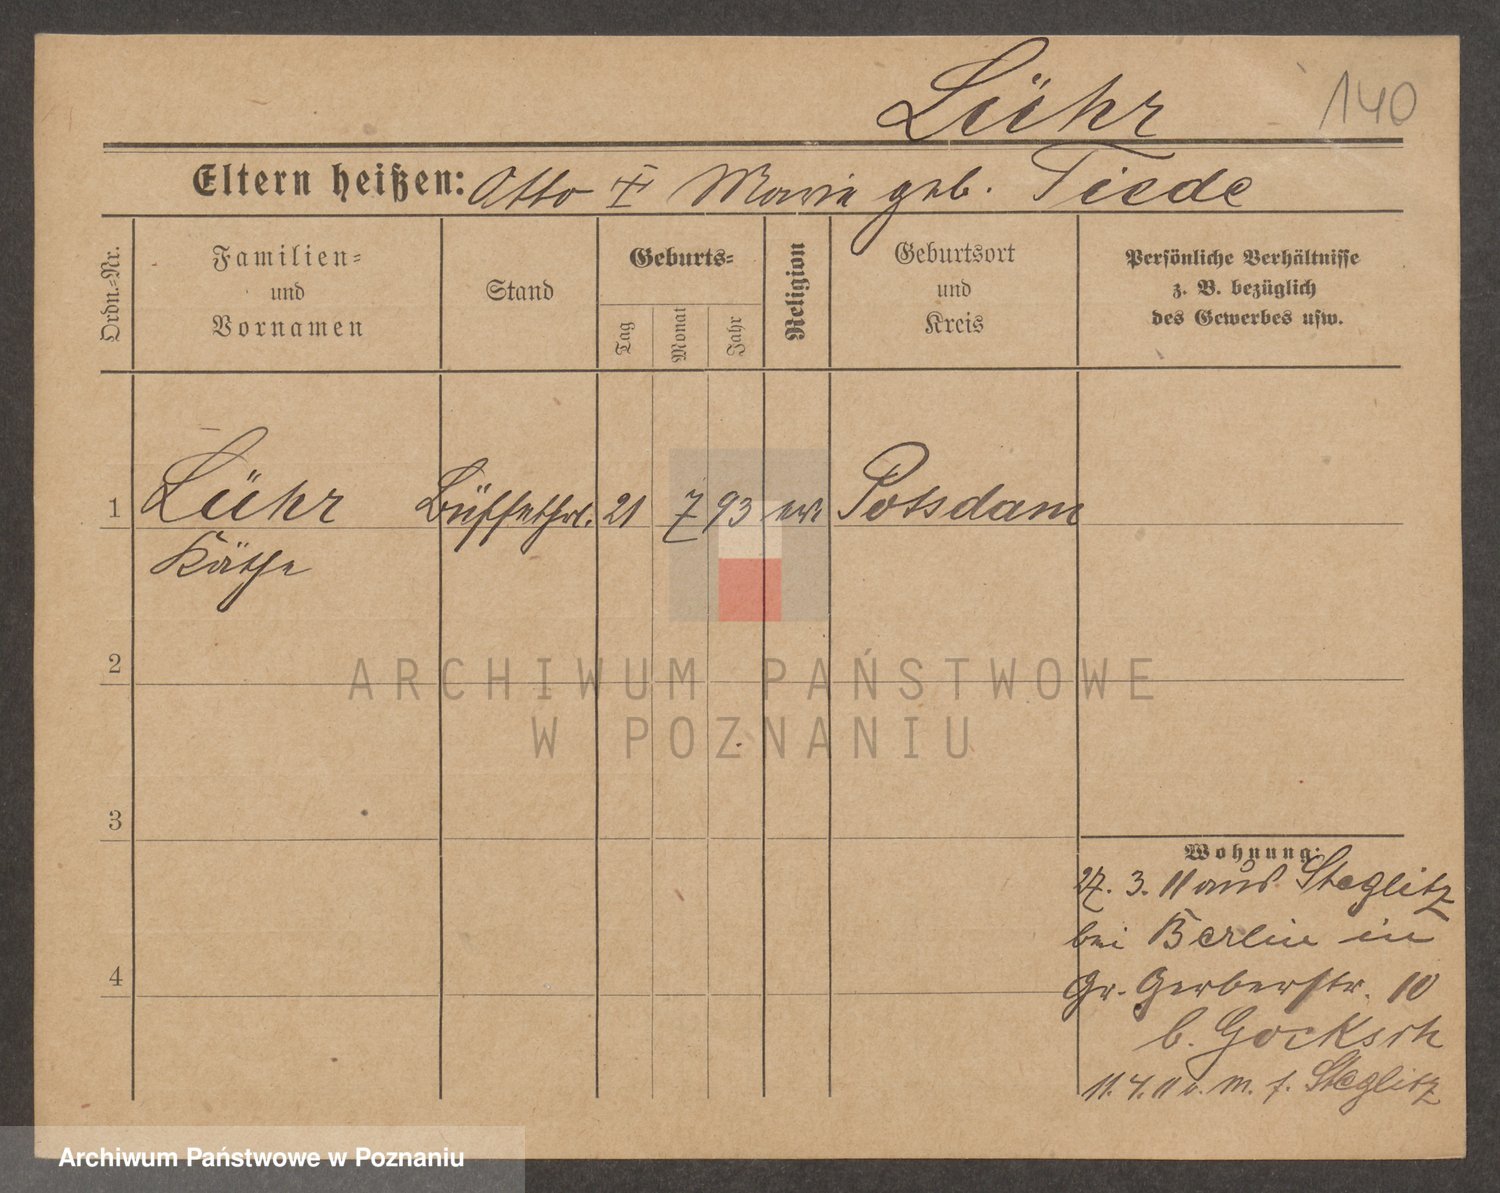 Lühr
140
Eltern heißen: Otto Marie geb. Tiede
Ordn.-Nr.
Familien-
und
Vornamen
Stand
Geburts-
Tag
Monat
Jahr
Religion
Geburtsort
und
Kreis
Persönliche Verhältnisse
z. B. bezüglich
des Gewerbes usw.
1 Lühr Büffethrl. 21 7 93 Potsdam
Käthe
2
3
4
ARCHIWUM PAŃSTWOWE
W POZNANIU
Wohnung:
27. 3. 11 aus Steglitz
bei Berlin in
Gr. Gerberstr. 10
b.
11. 4. 11 Steglitz
Archiwum Państwowe w Poznaniu